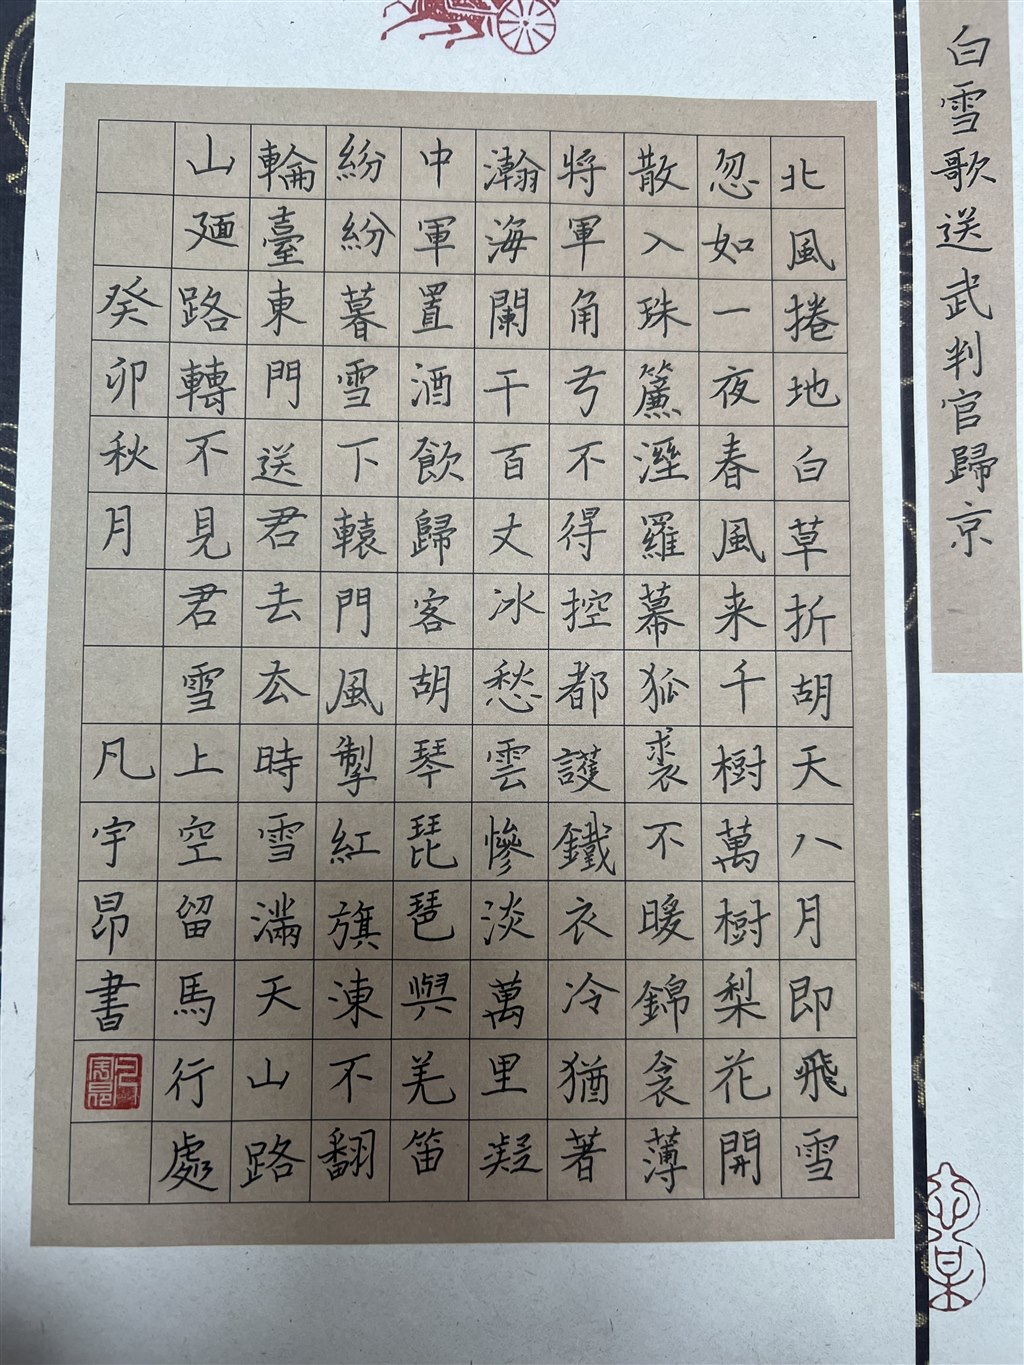 白雪歌送武判官歸京
北風捲地白草折胡天八月即飛雪
忽如一夜春風来千樹萬樹梨花開
散入珠簾溼羅幕狐裘不暖錦衾薄
將軍角弓不得控都護鐵衣冷猶著
瀚海闌干百丈冰愁雲慘淡萬里凝
中軍置酒飲歸客胡琴琵琶與羌笛
紛紛暮雪下轅門風掣紅旗凍不翻
輪臺東門送君去去時雪滿天山路
山迴路轉不見君雪上空留馬行處
癸卯秋月凡宇昂書